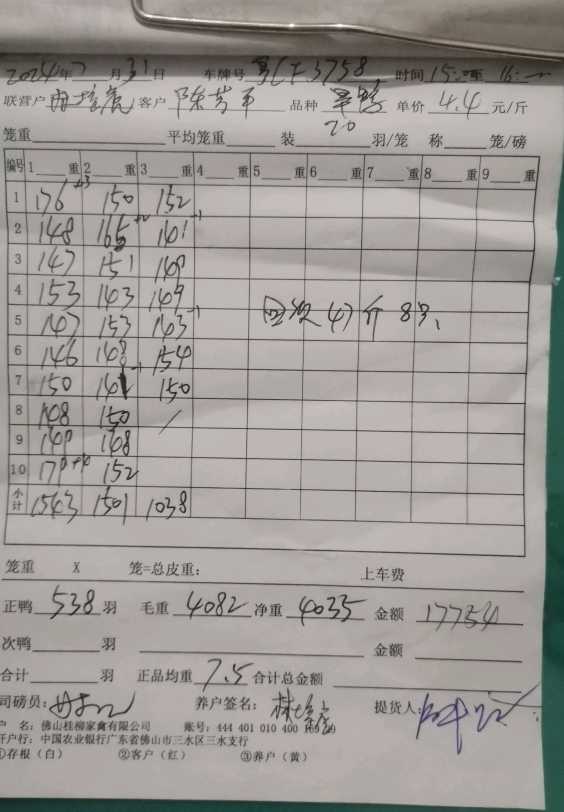 2024年7月31日 车牌号 粤CF3758 时间15:
联营户 客户 陈芳平 品种 单价 4.4 元/斤
笼重 平均笼重 装 20 羽/笼 称 笼/磅
编号 1 重 2 重 3 重 4 重 5 重 6 重 7 重 8 重 9 重
1 176 +3 150 152
2 148 165 +2 141 -1
3 147 151 149
4 153 143 149
5 147 153 143 -1
6 146 148 154
7 150 141 -1 150
8 148 150 /
9 149 148
10 179 +4 152
小计 1543 1501 1038
回次47斤 8只
笼重 X 笼=总皮重: 上车费
正鸭 538 羽 毛重 4082 净重 4035 金额 17754
次鸭 羽 金额
合计 羽 正品均重 7.5 合计总金额
司磅员: 养户签名: 提货人:
户 名: 佛山桂柳家禽有限公司 账号: 444 401 010 400
开户行: 中国农业银行广东省佛山市三水区三水支行
①存根(白) ②客户(红) ③养户(黄)